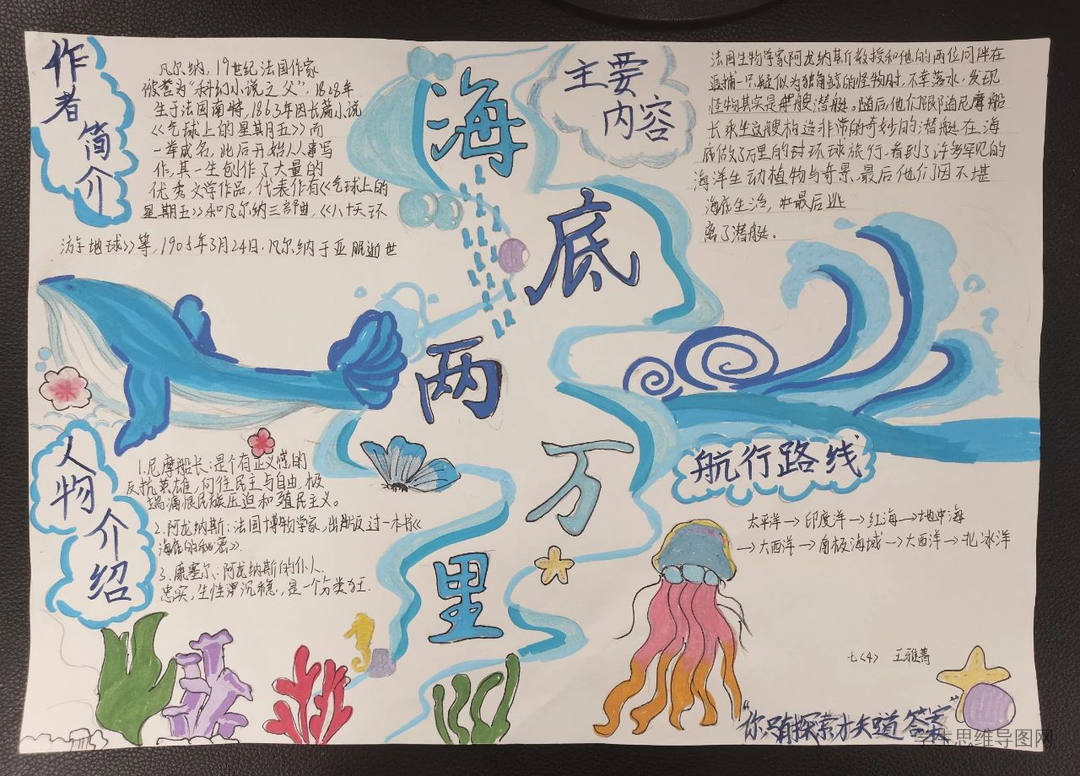 作者简介
凡尔纳，19世纪法国作家
被誉为“科幻小说之父”，1828年
生于法国南特，1863年因长篇小说
《气球上的星期五》而
一举成名，此后开始从事写
作，其一生创作了大量的
优秀文学作品，代表作有《气球上的
星期五》和凡尔纳三部曲，《八十天环
游地球》等，1905年3月24日，凡尔纳于亚眠逝世
海底两万里
主要
内容
法国生物学家阿龙纳斯教授和他的两位同伴在
追捕一只疑似为独角鲸的怪物时，不幸落水，发现
怪物其实是一艘潜艇，随后，他们跟随尼摩船
长乘坐这艘构造非常的奇妙的潜艇在海
底做了万里的环球旅行，看到了许多罕见的
海洋生动植物与奇景，最后他们因不堪
海底生活，最后逃
离了潜艇。
人物介绍
1.尼摩船长：是个有正义感的
反抗英雄，向往民主与自由，极
端痛恨民族压迫和殖民主义。
2.阿龙纳斯：法国博物学家，出版过一本书《
海底的秘密》
3.康塞尔：阿龙纳斯的仆人，
忠实，生性沉稳，是一个分类狂.
航行路线
太平洋→印度洋→红海→地中海
→大西洋→南极海域→大西洋→北冰洋
七（4） 王雅菁
“你只有探索才知道答案”
学生思维导图网